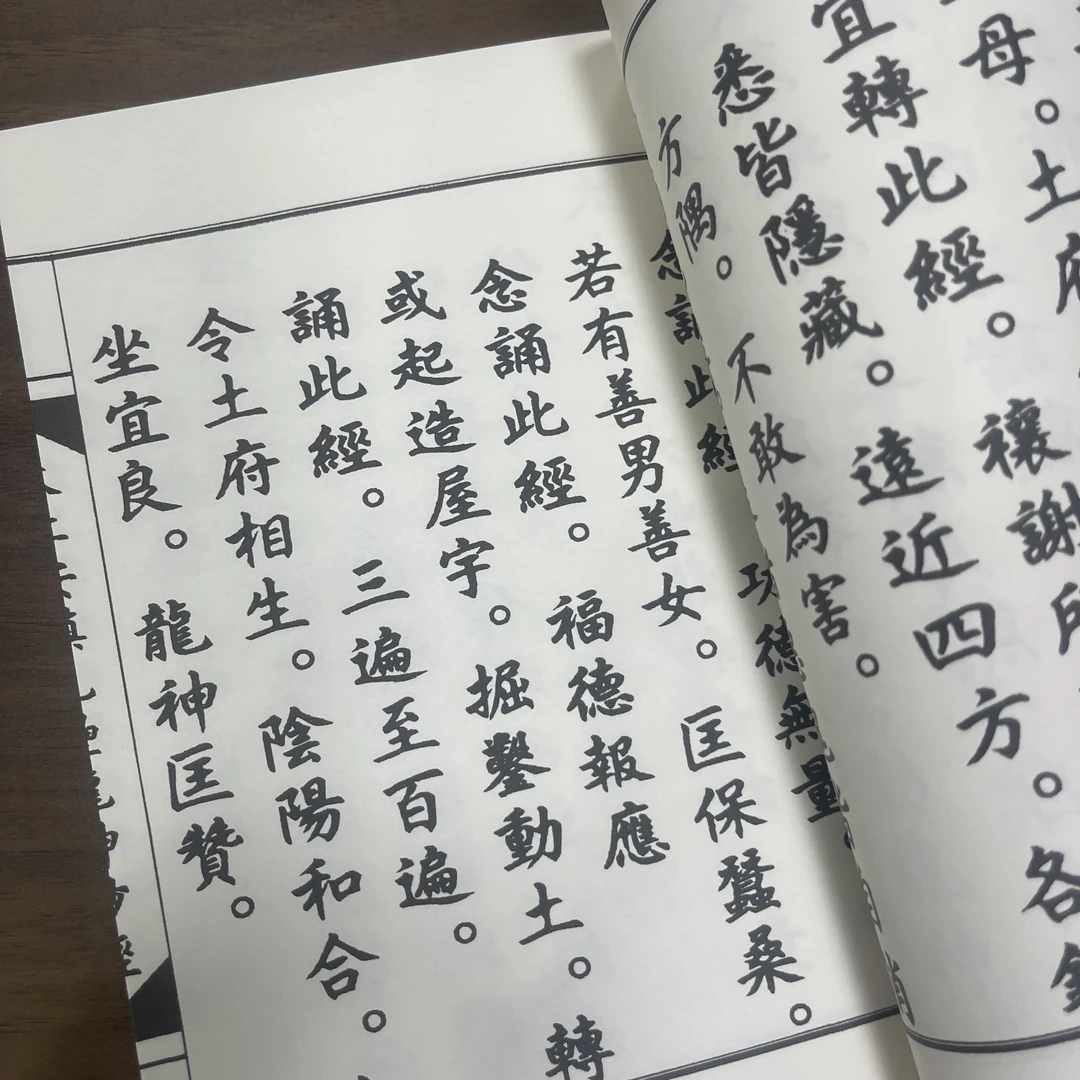 母。土府
宜轉此經。禳謝所
悉皆隱藏。遠近四方。各
方隅。不敢為害。
念誦此經 功德無量
若有善男善女。匡保蠶桑。
念誦此經。福德報應
或起造屋宇。掘鑿動土。轉
誦此經。三遍至百遍。
令土府相生。陰陽和合。
坐宜良。龍神匡贊。